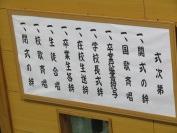 式次第
一、開式の辞
一、国歌斉唱
一、卒業証書授与
一、学校長式辞
一、在校生送辞
一、卒業生答辞
一、生徒合唱
一、校歌斉唱
一、閉式の辞